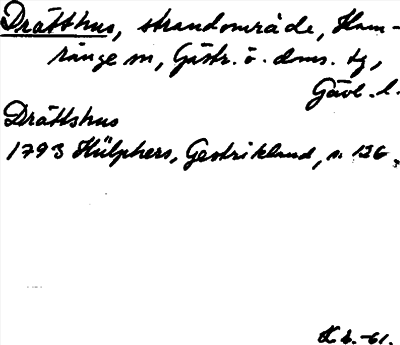 Drätthus, strandområde, Ham-
rånge sn, Gästr. ö. dms. tg,
Gävl. l.
Drättshus
1793 Hülphers, Gestrikland, s. 126.
-61.